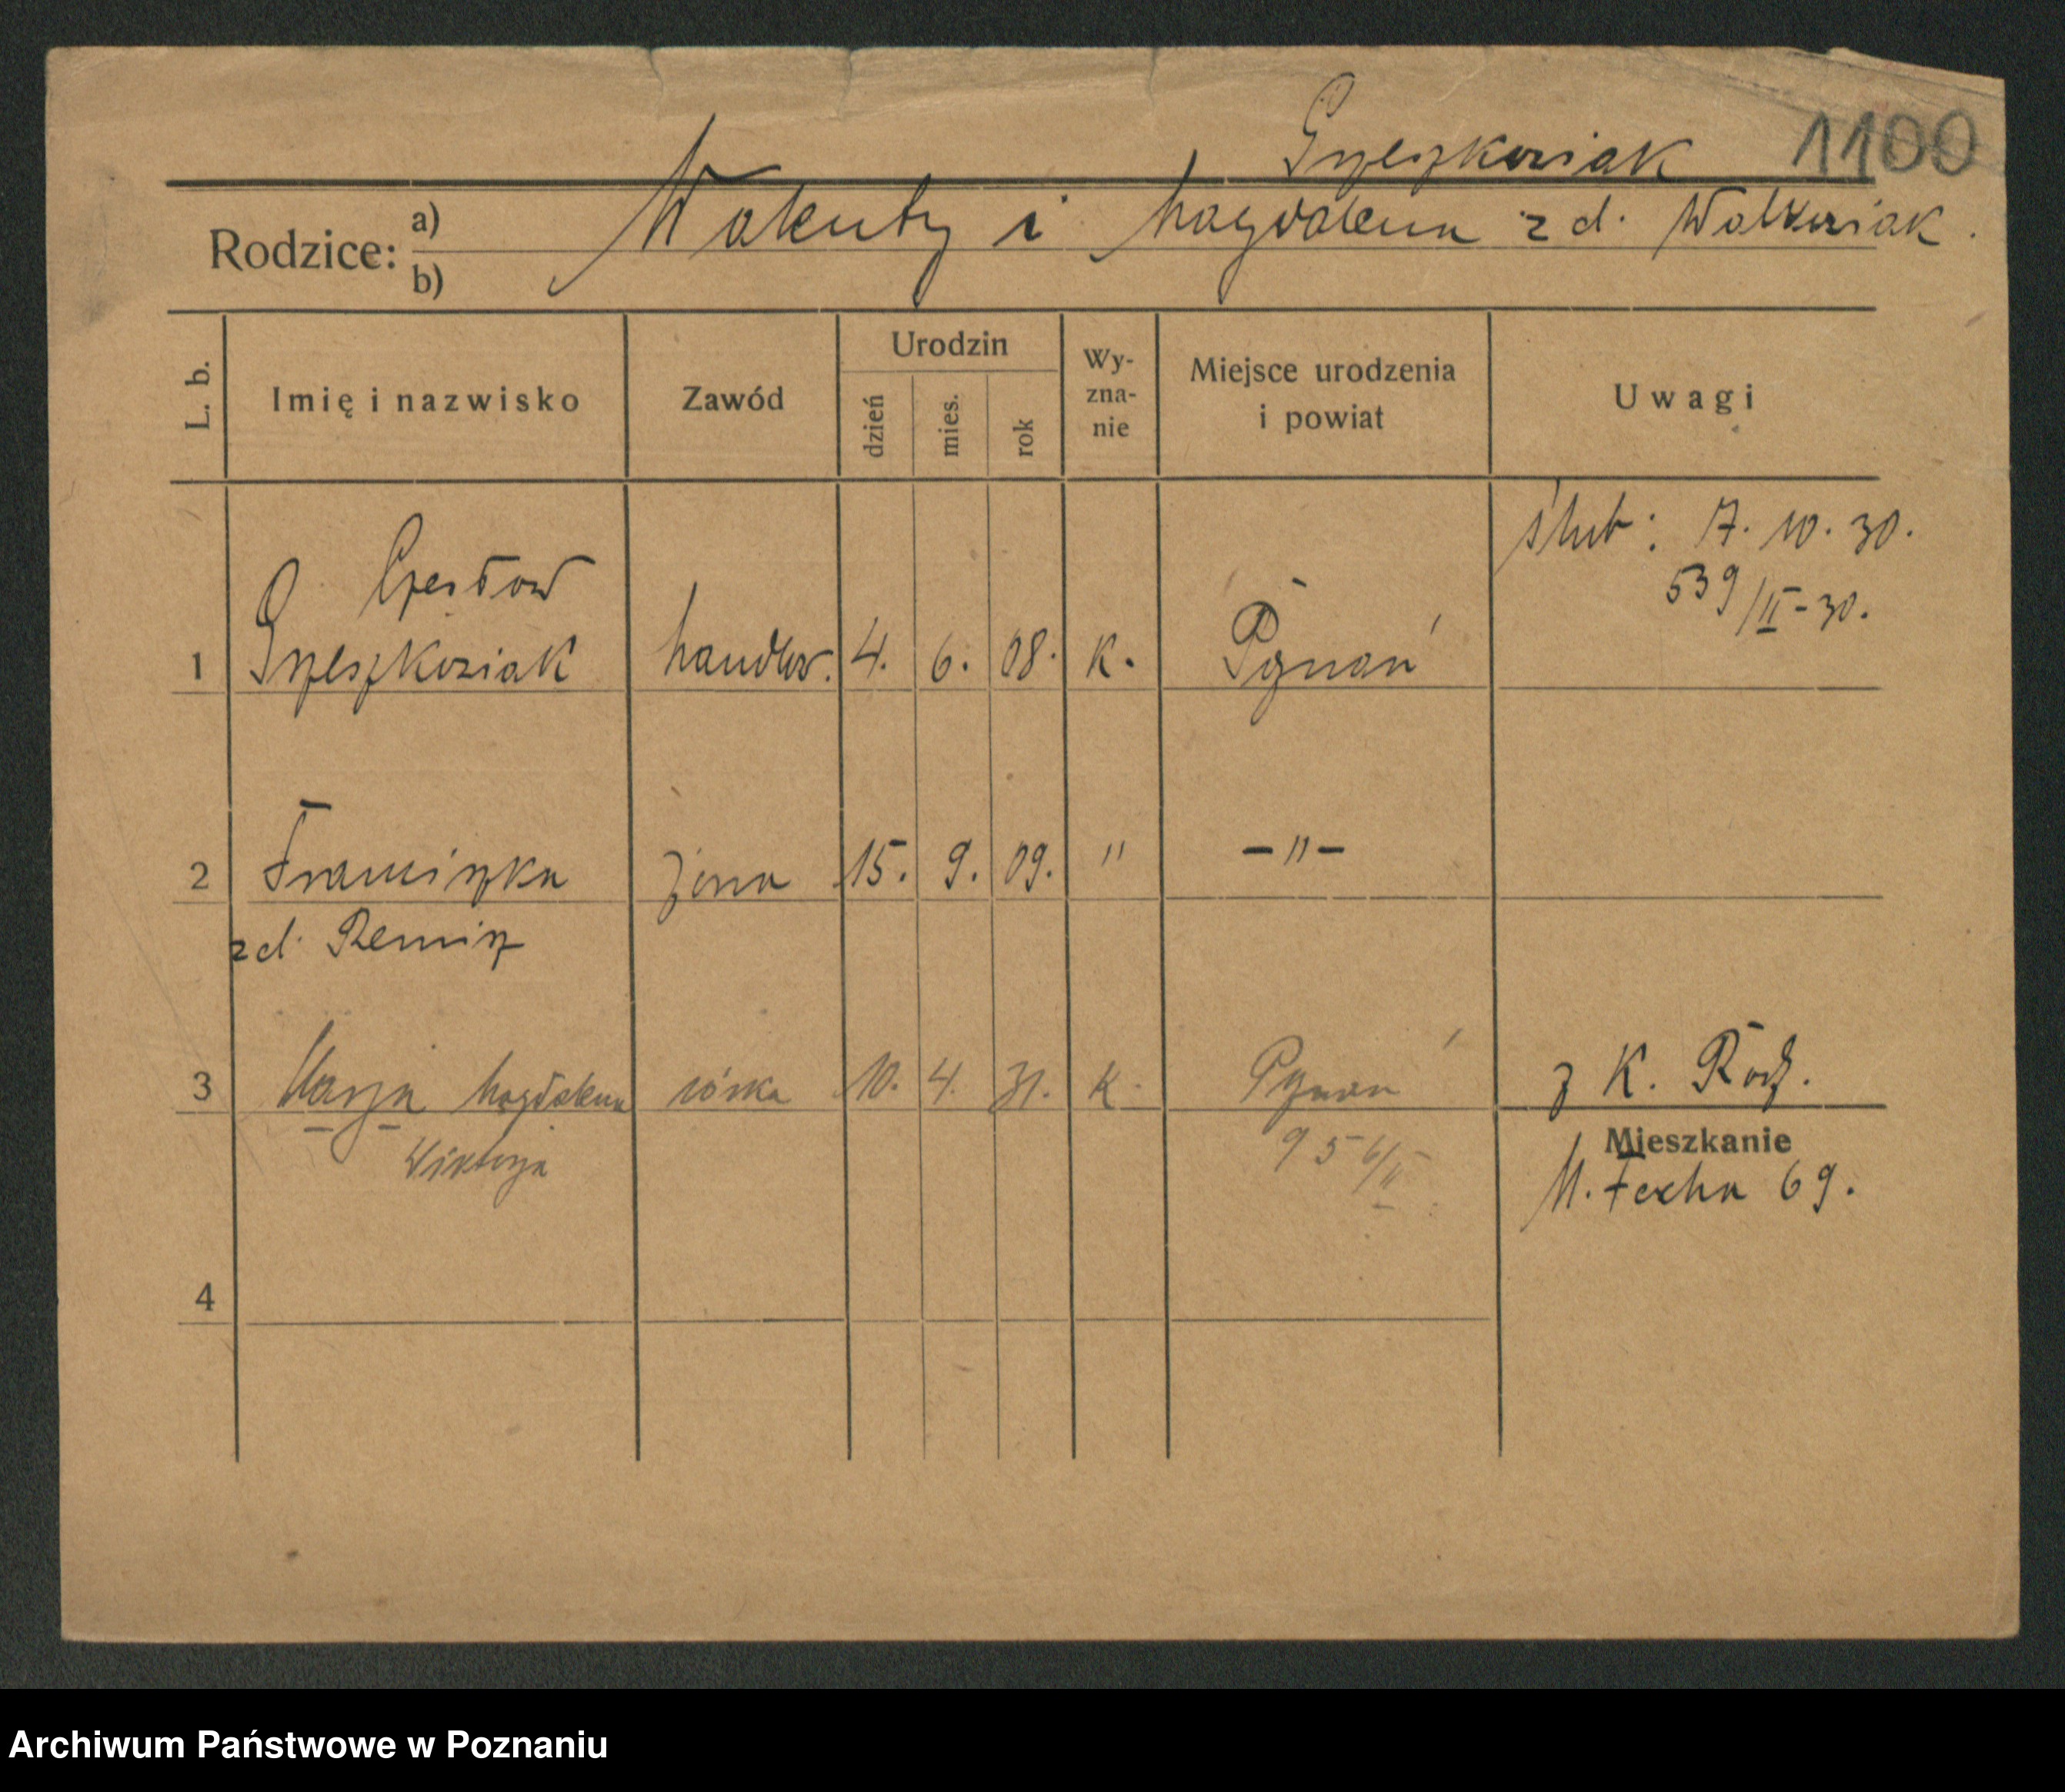 Grzeszkowiak 1100
Rodzice: a) Walenty i Magdalena z d. Walkowiak.
b)
L. b. Imię i nazwisko Zawód Urodzin dzień mies. rok Wy-zna-nie Miejsce urodzenia i powiat Uwagi
ślub: 7. 10. 30.
539/II-30.
Czesław
1 Grzeszkowiak handlow. 4. 6. 08. K. Poznań
2 Franciszka żona 15. 9. 09. " -"-
z d. Remisz
3 Marja Magdalena córka 10. 4. 31. K. Poznań z K. Rodz.
Wiktorja 956/II
Mieszkanie
M. Focha 69.
4
Archiwum Państwowe w Poznaniu